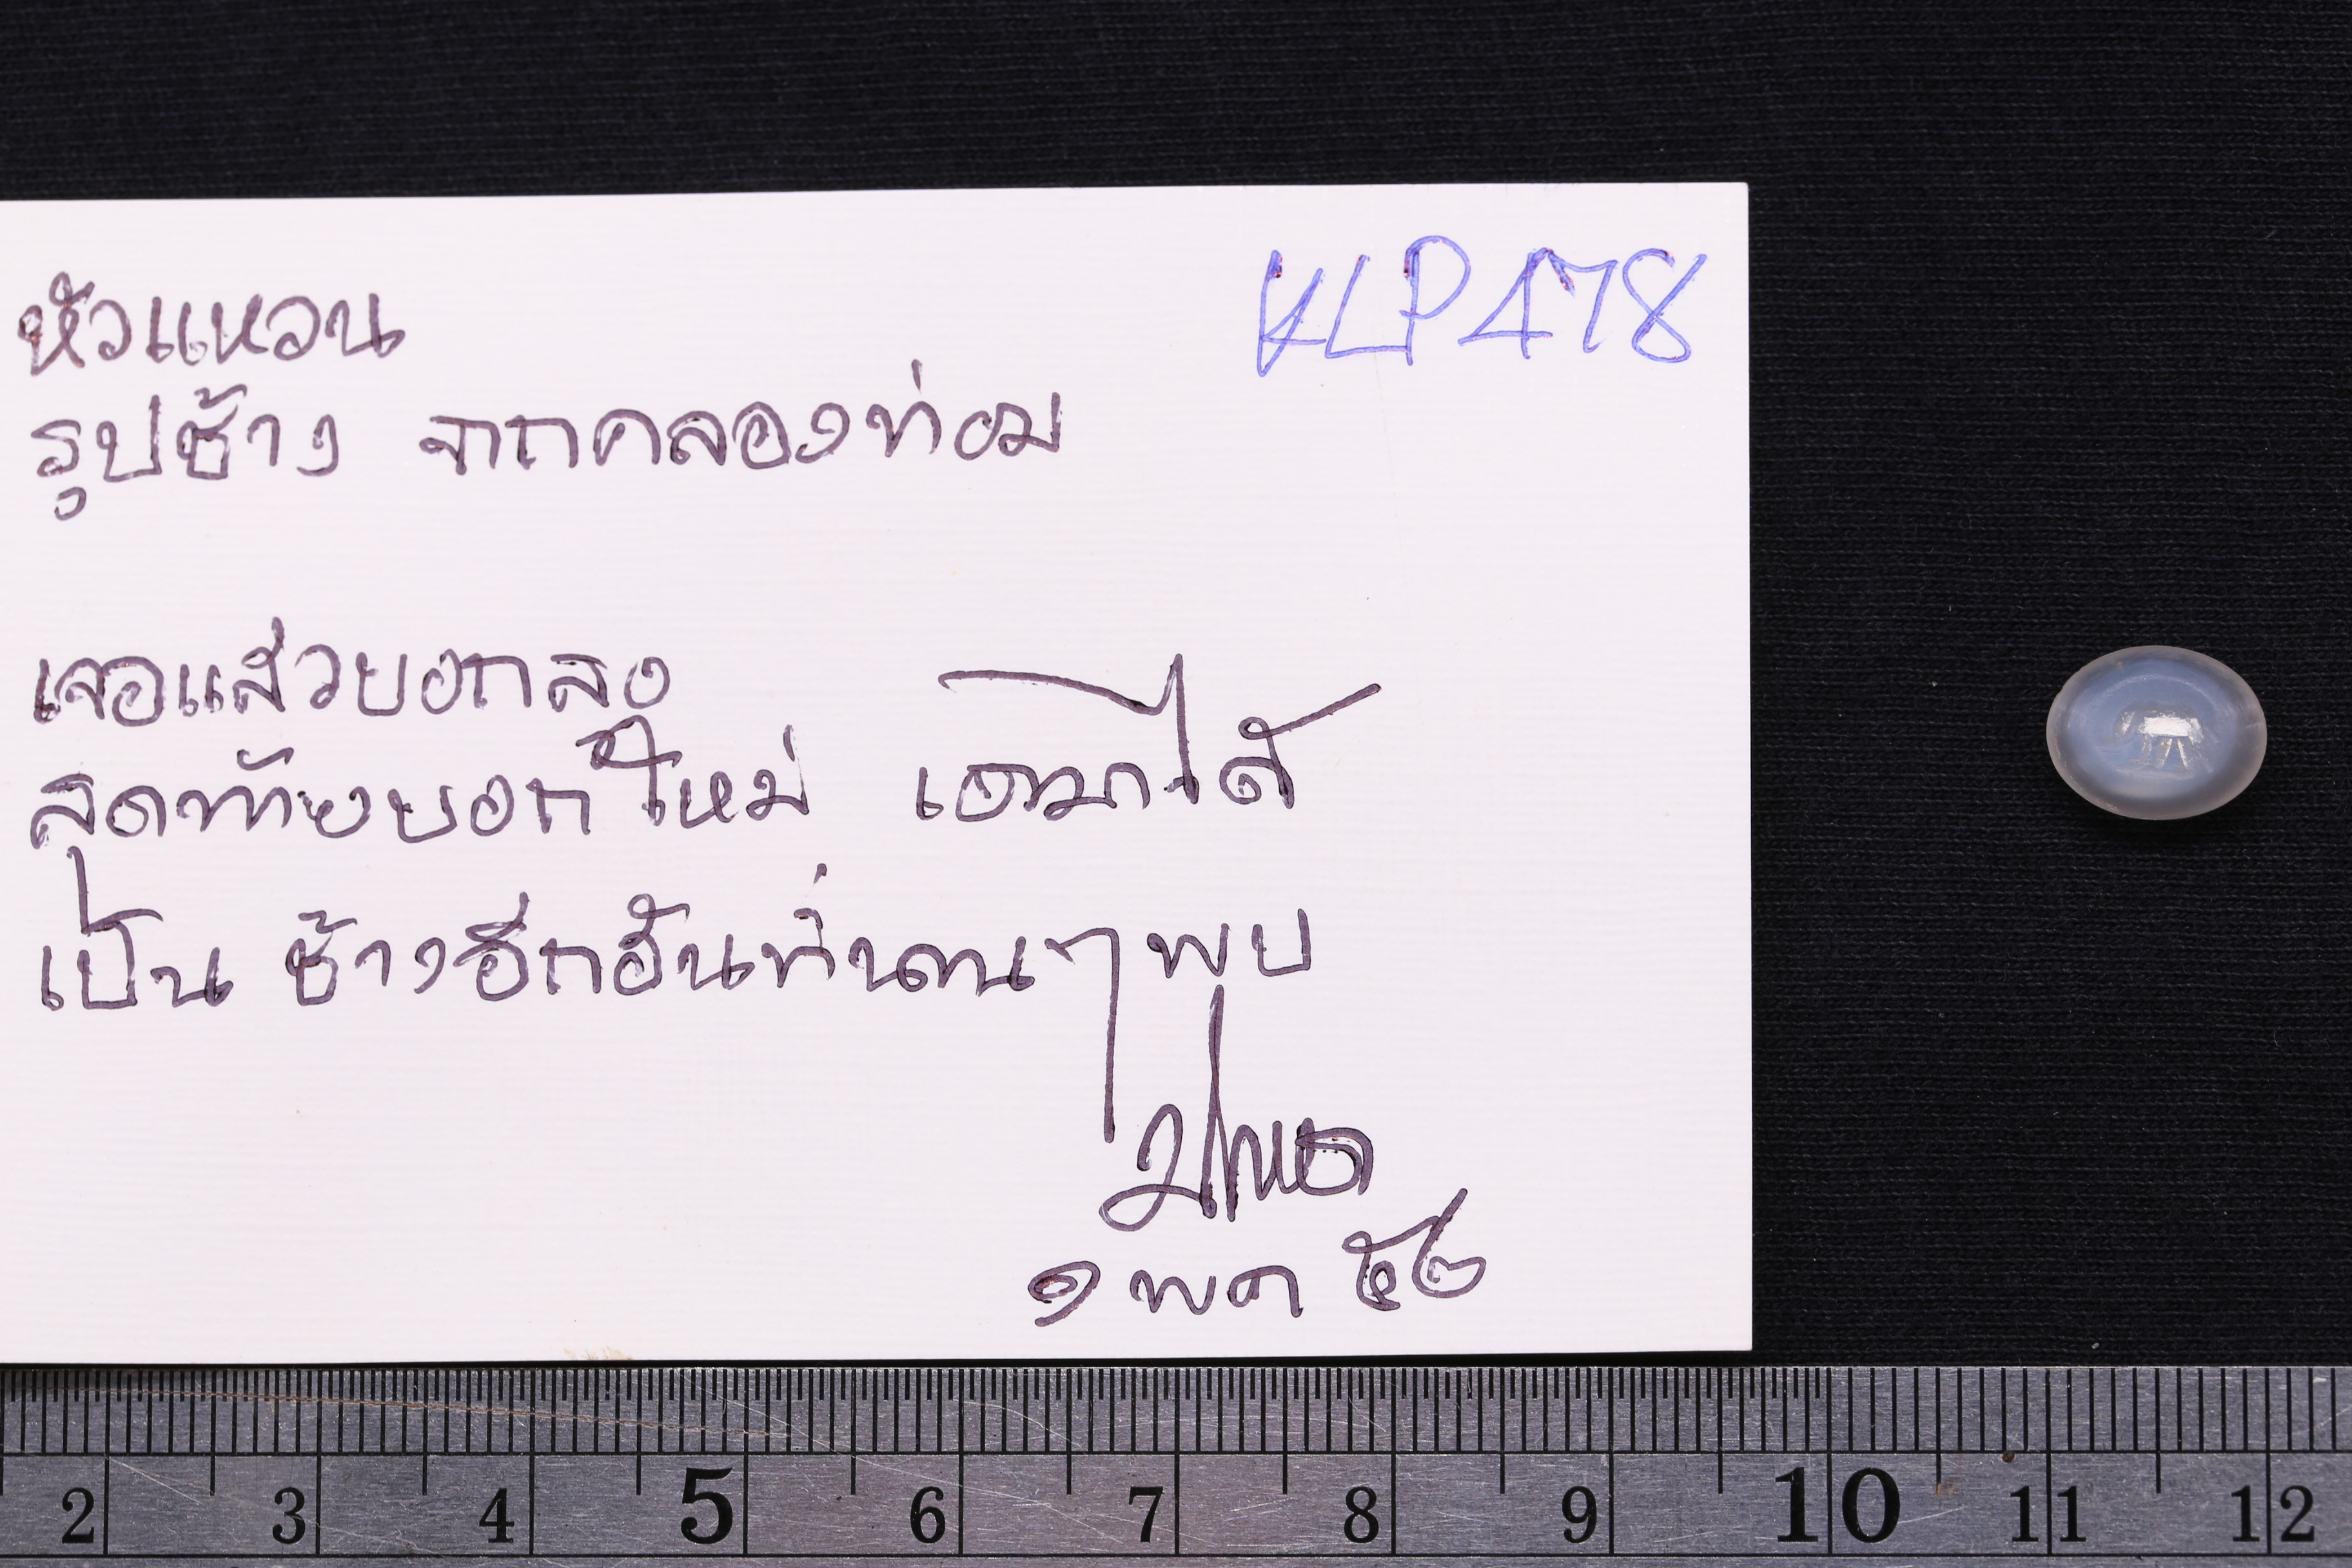 KLP478
หัวแหวน
รูปช้าง จากคลองท่อม
เจอแล้วบอกลง
สุดท้ายบอกใหม่ เอาได้
เป็น ช้างอีกอันที่นานๆ พบ
๑ พค ๕๒
2 3 4 5 6 7 8 9 10 11 12